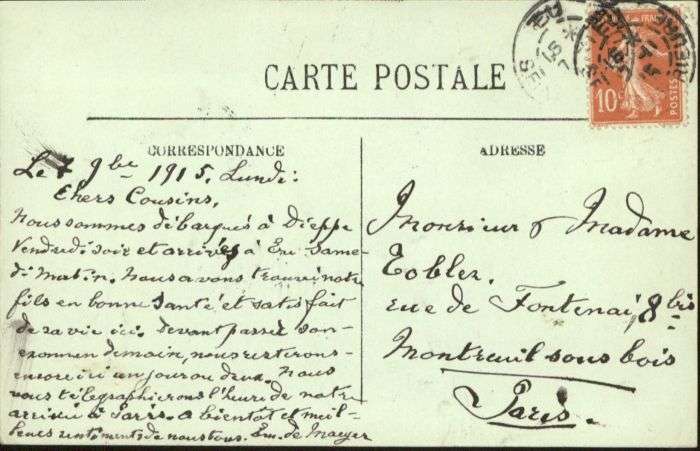 CARTE POSTALE
CORRESPONDANCE
Le 7 9bre 1915. Lundi:
Chers Cousins,
Nous sommes débarqués à Dieppe
Vendredi soir et arrivés à Eu Same-
di Matin. Nous avons trouvé notre
fils en bonne santé et satisfait
de sa vie ici. Devant passer son
examen demain, nous resterons
encore ici un jour ou deux. Nous
vous télégraphierons l'heure de notre
arrivée à Paris. A bientôt et meil-
leurs sentiments de nous tous. Em. de Maeyer
ADRESSE
Monsieur & Madame
Tobler.
rue de Fontenai, 8 bis
Montreuil sous bois
Paris.
10c
POSTES